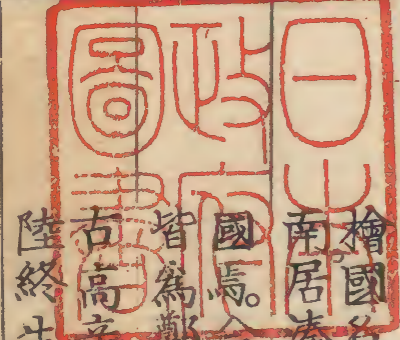 日本
政府
圖書
檜國名
南居溱
國焉。
皆爲鄭
古高辛
陸終